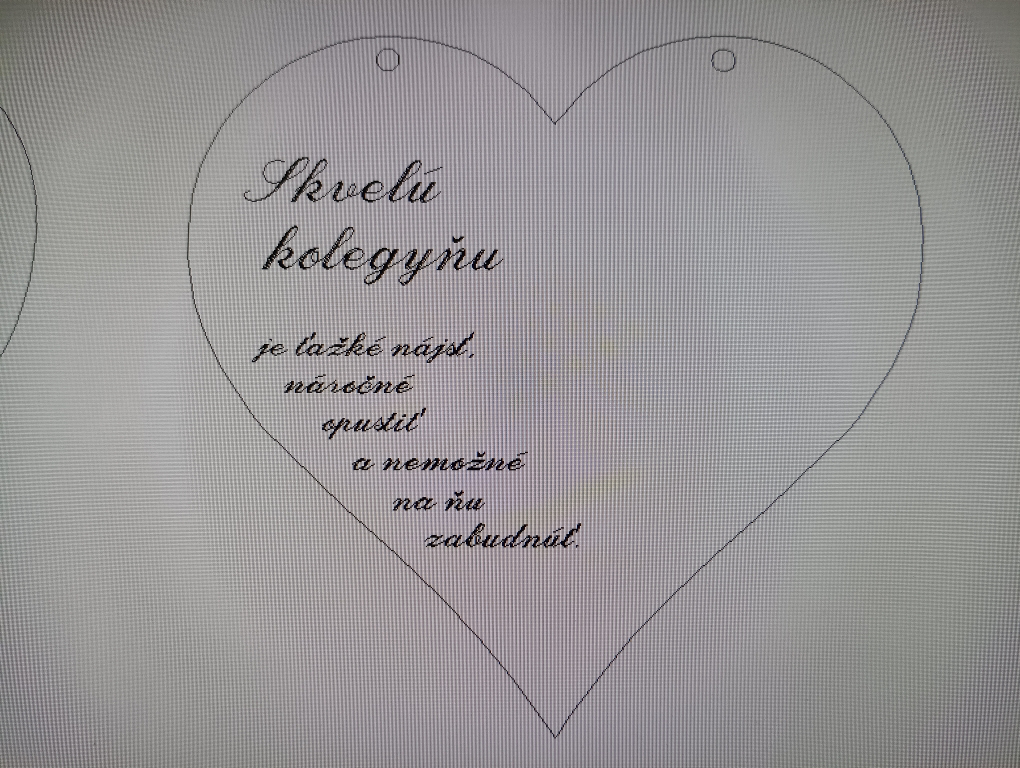 Skvelú
kolegyňu
je ťažké nájsť,
náročné
opustiť
a nemožné
na ňu
zabudnúť.